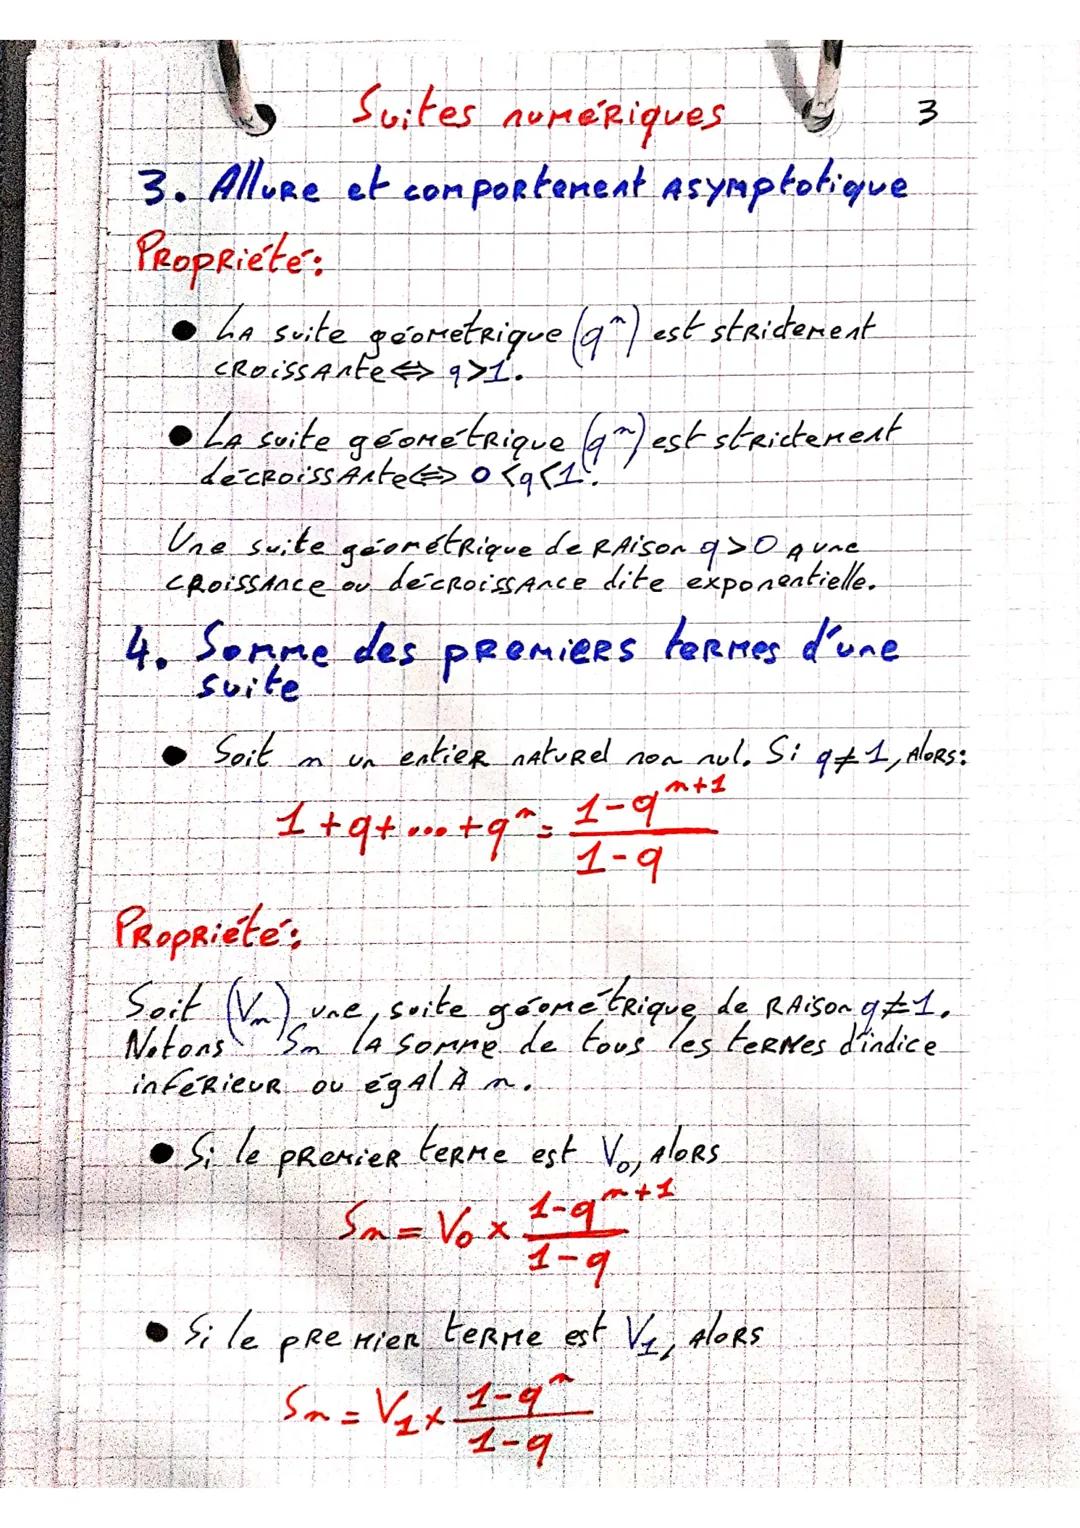 Suites numériques 3
3. Allure et comportement asymptotique
Propriété:
● La suite géométrique (qⁿ) est strictement
croissante ⇔ q>1.
● La suite géométrique (qⁿ) est strictement
décroissante ⇔ 0<q<1.
Une suite géométrique de raison q>0 a une
croissance ou décroissance dite exponentielle.
4. Somme des premiers termes d'une
suite
● Soit n un entier naturel non nul. Si q≠1, alors:
1+q+...+qⁿ = (1-qⁿ⁺¹)/(1-q)
Propriété:
Soit (Vₙ) une suite géométrique de raison q≠1.
Notons Sₙ la somme de tous les termes d'indice
inférieur ou égal à n.
● Si le premier terme est V₀, alors
Sₙ = V₀ × (1-qⁿ⁺¹)/(1-q)
● Si le premier terme est V₁, alors
Sₙ = V₁ × (1-qⁿ)/(1-q)